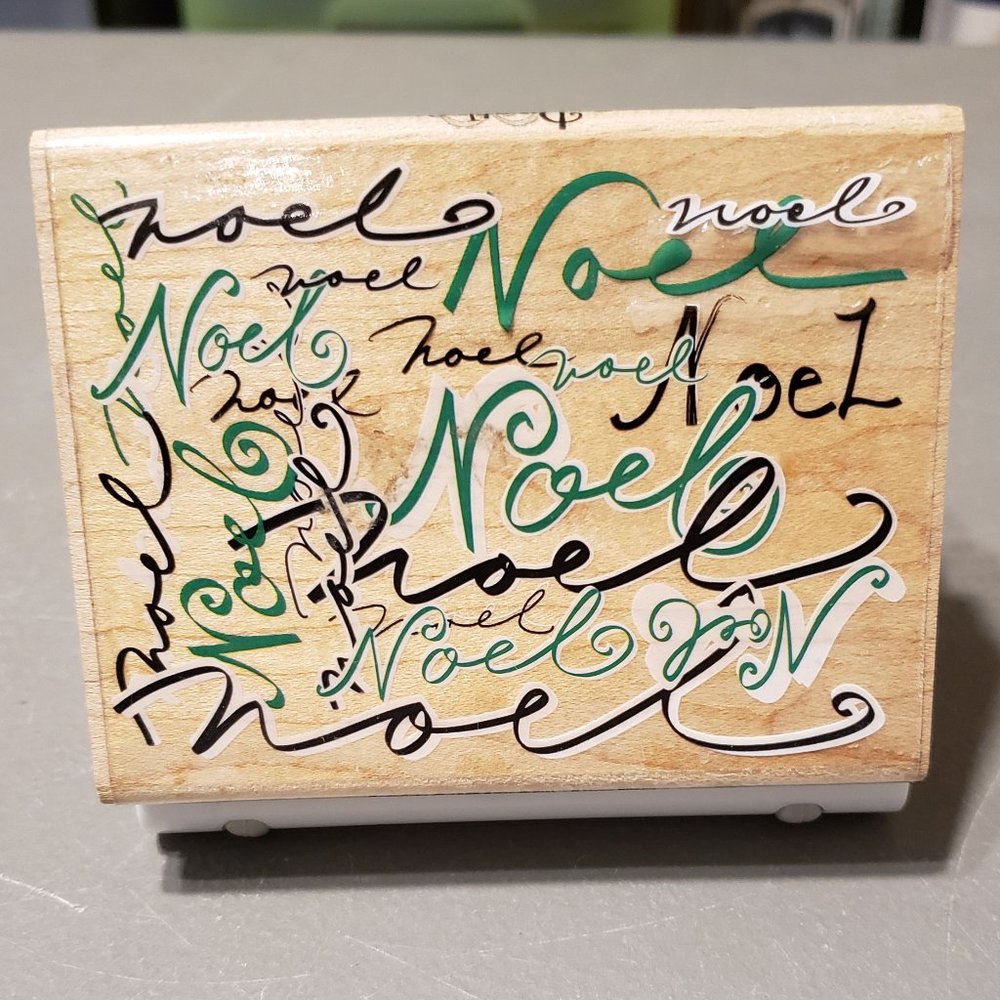 noel
Noel
noel
noel
noel
Noel
noel
noel
NoeL
noel
Noel
Noel
noel
noel
noel
noel
noel
Noel
Noel
noel